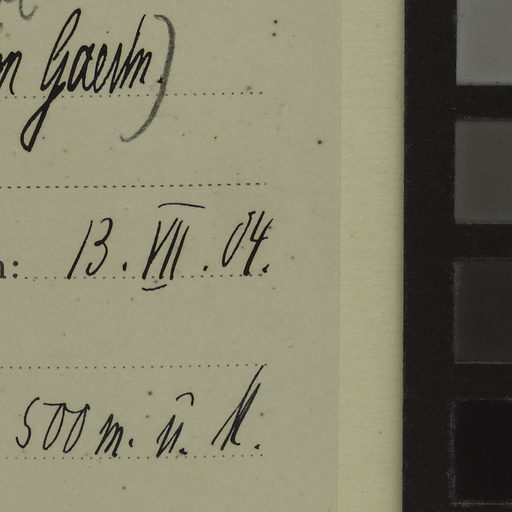 Gaertn.)
: 13. VII. 04.
500 m. ü. M.